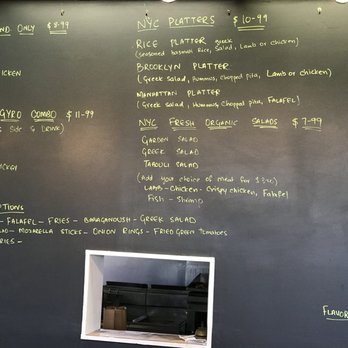 ND ONLY $8.99
CKEN
GYRO COMBO $11-99
SIDE & DRINK)
PTIONS
- FALAFEL - FRIES - BABAGANOUSH - GREEK SALAD
- MOZARELLA STICKS - ONION RINGS - FRIED GREEN TOMATOES
RIES -
NYC PLATTERS $10-99
RICE PLATTER greek
(seasoned basmati Rice, Salad, Lamb or chicken)
BROOKLYN PLATTER
(Greek Salad, Hummus, Chopped pita, Lamb or chicken)
MANHATTAN PLATTER
(Greek Salad, Hummus, Chopped pita, FALAFEL)
NYC FRESH ORGANIC SALADS $7-99
GARDEN SALAD
GREEK SALAD
TABOULI SALAD
(Add your choice of meat for
LAMB - Chicken - Crispy chicken, Falafel
Fish - Shrimp
FLAVOR